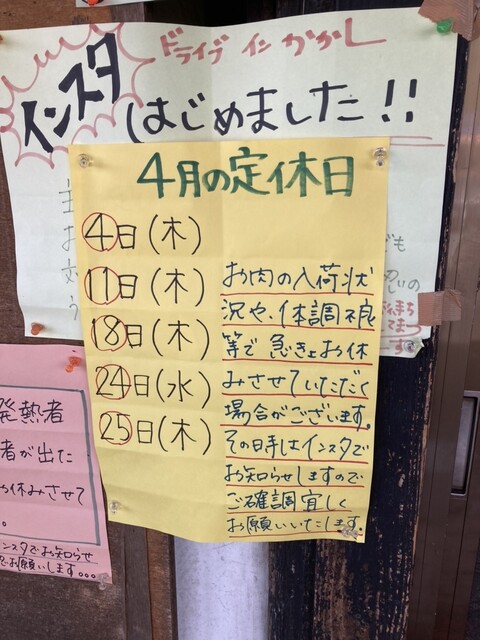 ドライブ イン かかし
インスタ
はじめました!!
4月の定休日
4日(木)
11日(木)
18日(木)
24日(水)
25日(木)
お肉の入荷状
況や、体調不良
等で急きょお休
みさせていただく
場合がございます。
その日時はインスタで
お知らせしますので
ご確調宜しく
お願いいたします。
発熱者
者が出た
お休みさせて
。
インスタでお知らせ
お願いします...